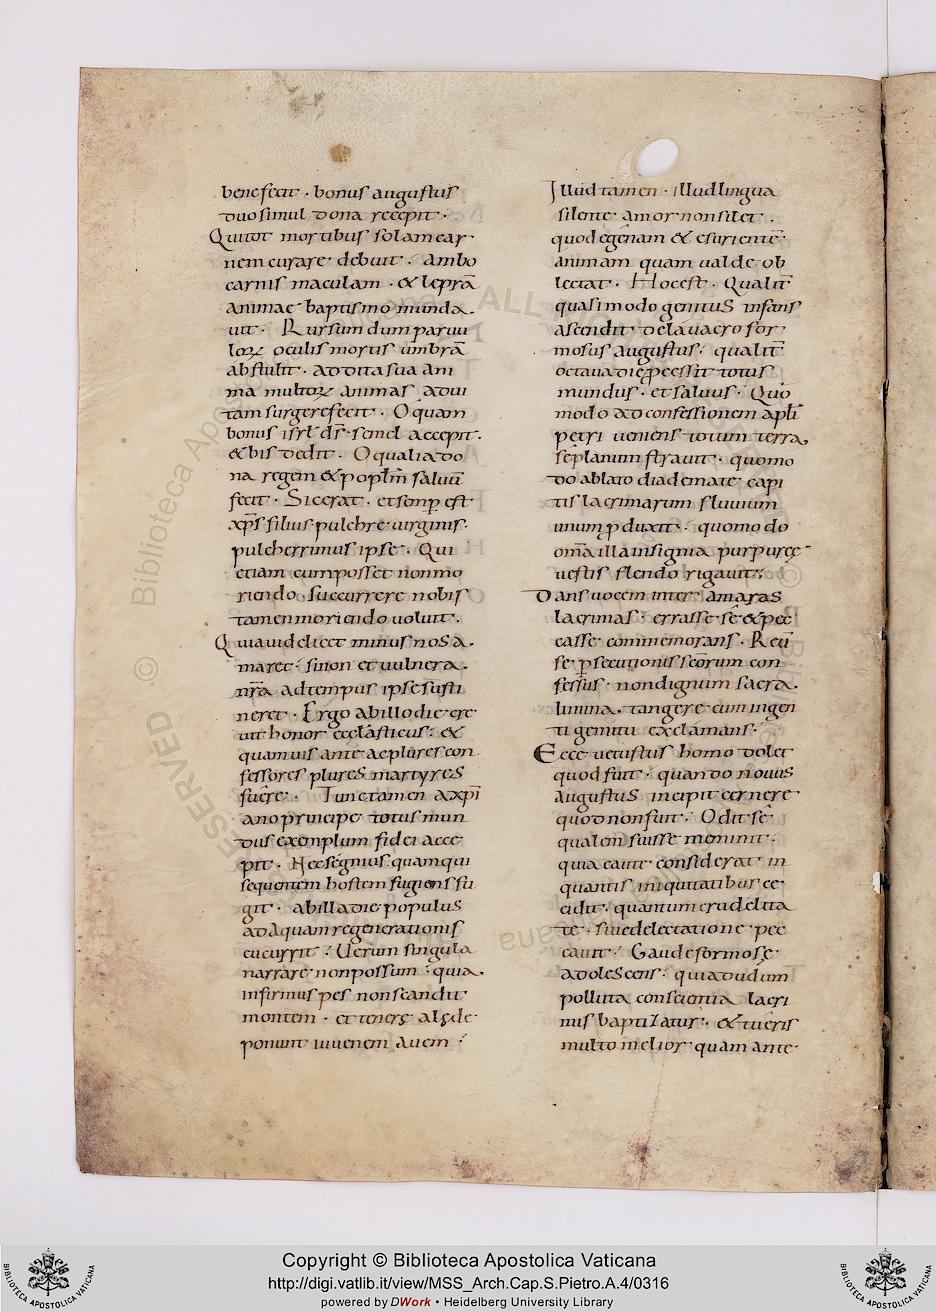 benefecit · bonus augustus
duo simul dona recepit ·
Qui tot mortibus solam car
nem curare debuit : ambo
carnis maculam · & lep̄rā
animae baptismo munda
uit · Rursum dum paruu
loꝝ oculis mortis umbrā
abstulit · addita sua ani
ma multoꝝ animas ad ui
tam surgere fecit · O quam
bonus isrl̄ ds̄ · semel accepit ·
& bis dedit · O qualia do
na regem & poplm̄ saluū
fecit · Sic erat · et semp̄ est
xp̄s filius pulchre uirginis
pulcherrimus ipse · Qui
etiam cum posset non mo
riendo · succurrere nobis
tamen moriendo uoluit ·
Qua uidelicet minus nos a
maret : si non et uulnera
nr̄a ad tempus ipse susti
neret · Ergo ab illo die cre
uit honor ecclasticus : &
quamuis ante ac plures con
fessores plures martyres
fuēre · Tunc tamen a xp̄i
ano principe totus mun
dus exemplum fidei acce
pit · Nec segnius quam qui
sequentem hostem fugiens fu
git · ab illa die populus
ad aquam regenerationis
cucurrit : Uerum singula
narrare non possum : quia
infirmus pes non scandit
montem · et tenerę alę de
ponunt iuuenem auem :
Illud tamen · illud lingua
silente amor non silet ·
quod egenam & esurientē
animam quam ualde ob
lectat · Hoc est · Qualit̄
quasi modo genitus infans
ascendit de lauacro for
mosus augustus : qualit̄
octaua die p̄cessit totus
mundus · et saluus : Quo
modo ad confessionem apl̄i
petri ueniens totum terra
se planum strauit · quomo
do ablato diademate capi
tis lacrimarum fluuium
unum p̄duxit : quomodo
om̄a illa insignia purpureę
uestis flendo rigauit :
Dans uocem inter amaras
lacrimas : errasse se & pec
casse commemorans · Reū
se p̄secutionis sc̄orum con
fessus · non dignum sacra
limina · tangere cum ingen
ti gemitu exclamans :
Ecce uetustus homo dolet
quod fuit · quando nouus
augustus incipit cernere
quod non fuit : Odit se
qualem fuisse meminit :
quia caute considerat in
quantis iniquitatibus ce
cidit · quantum crudelita
te · siue delectatione pec
cauit : Gaude formose
adolescens : quia dudum
polluta conscientia lacri
mis baptizatur · & tu eris
multo melior quam ante
Copyright © Biblioteca Apostolica Vaticana
http://digi.vatlib.it/view/MSS_Arch.Cap.S.Pietro.A.4/0316
powered by DWork • Heidelberg University Library